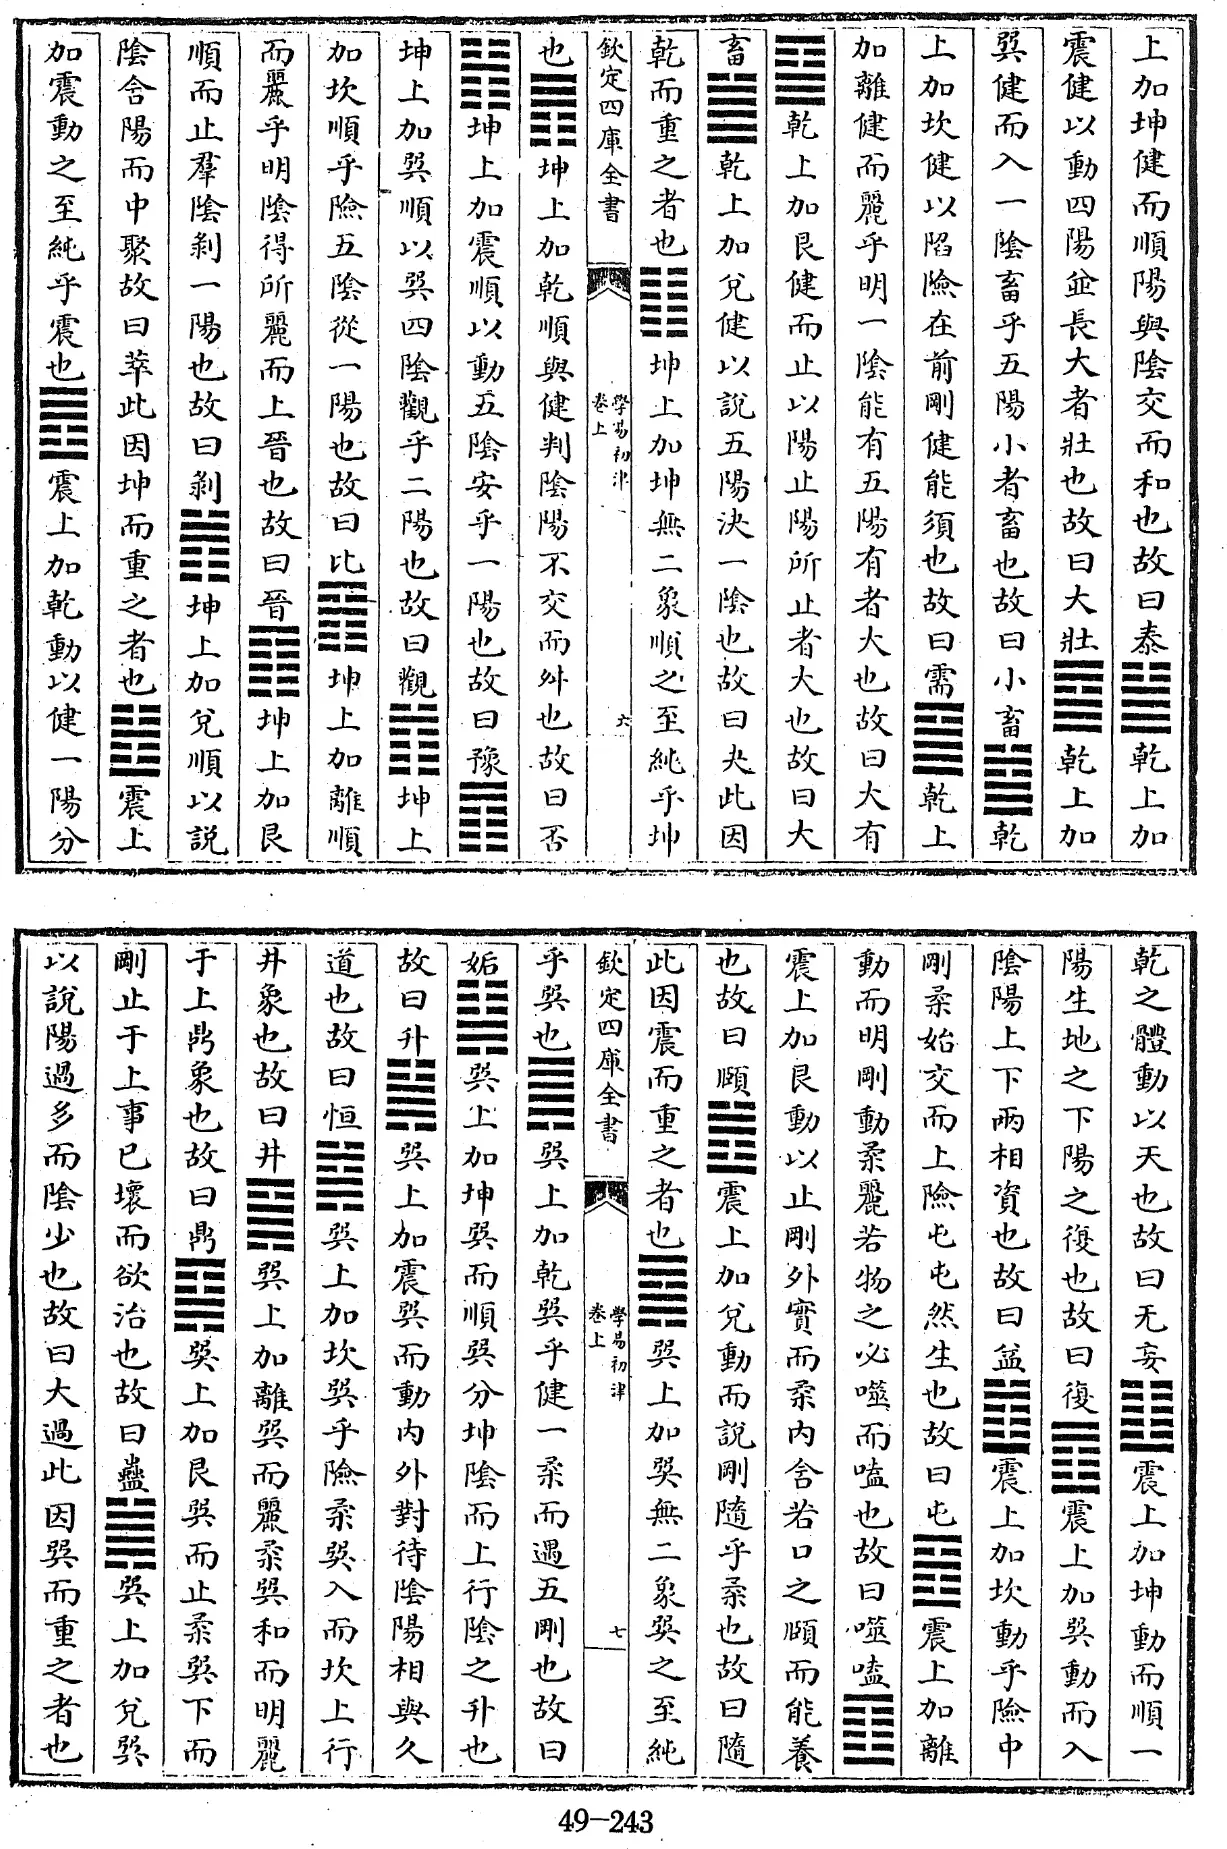 上加坤健而順陽與陰交而和也故曰泰䷡乾上加
震健以動四陽並長大者壯也故曰大壯䷈乾上加
巽健而入一陰畜乎五陽小者畜也故曰小畜䷄乾
上加坎健以陷險在前剛健能須也故曰需䷍乾上
加離健而麗乎明一陰能有五陽有者大也故曰大有
䷙乾上加艮健而止以陽止陽所止者大也故曰大
畜䷪乾上加兌健以說五陽決一陰也故曰夬此因
乾而重之者也䷁坤上加坤無二象順之至純乎坤
欽定四庫全書
學易初津
卷上
六
也䷋坤上加乾順與健判陰陽不交而舛也故曰否
䷏坤上加震順以動五陰安乎一陽也故曰豫䷓
坤上加巽順以巽四陰觀乎二陽也故曰觀䷇坤上
加坎順乎險五陰從一陽也故曰比䷢坤上加離順
而麗乎明陰得所麗而上晉也故曰晉䷖坤上加艮
順而止羣陰剝一陽也故曰剝䷬坤上加兌順以說
陰含陽而中聚故曰萃此因坤而重之者也䷲震上
加震動之至純乎震也䷘震上加乾動以健一陽分
乾之體動以天也故曰无妄䷗震上加坤動而順一
陽生地之下陽之復也故曰復䷩震上加巽動而入
陰陽上下兩相資也故曰益䷂震上加坎動乎險中
剛柔始交而上險屯屯然生也故曰屯䷔震上加離
動而明剛動柔麗若物之必噬而嗑也故曰噬嗑䷚
震上加艮動以止剛外實而柔內含若口之頤而能養
也故曰頤䷐震上加兌動而說剛隨乎柔也故曰隨
此因震而重之者也䷸巽上加巽無二象巽之至純
欽定四庫全書
學易初津
卷上
七
乎巽也䷫巽上加乾巽乎健一柔而遇五剛也故曰
姤䷭巽上加坤巽而順巽分坤陰而上行陰之升也
故曰升䷟巽上加震巽而動內外對待陰陽相與久
道也故曰恒䷯巽上加坎巽乎險柔巽入而坎上行
井象也故曰井䷱巽上加離巽而麗柔巽和而明麗
于上鼎象也故曰鼎䷑巽上加艮巽而止柔巽下而
剛止于上事已壞而欲治也故曰蠱䷛巽上加兌巽
以說陽過多而陰少也故曰大過此因巽而重之者也
49-243